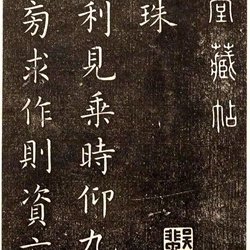 堂藏帖
珠
利見乘時仰九
旁求作則資